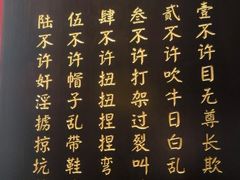 壹不许目无尊长欺
贰不许吹牛日白乱
叁不许打架过裂叫
肆不许扭扭捏捏弯
伍不许帽子乱带鞋
陆不许奸淫掳掠坑